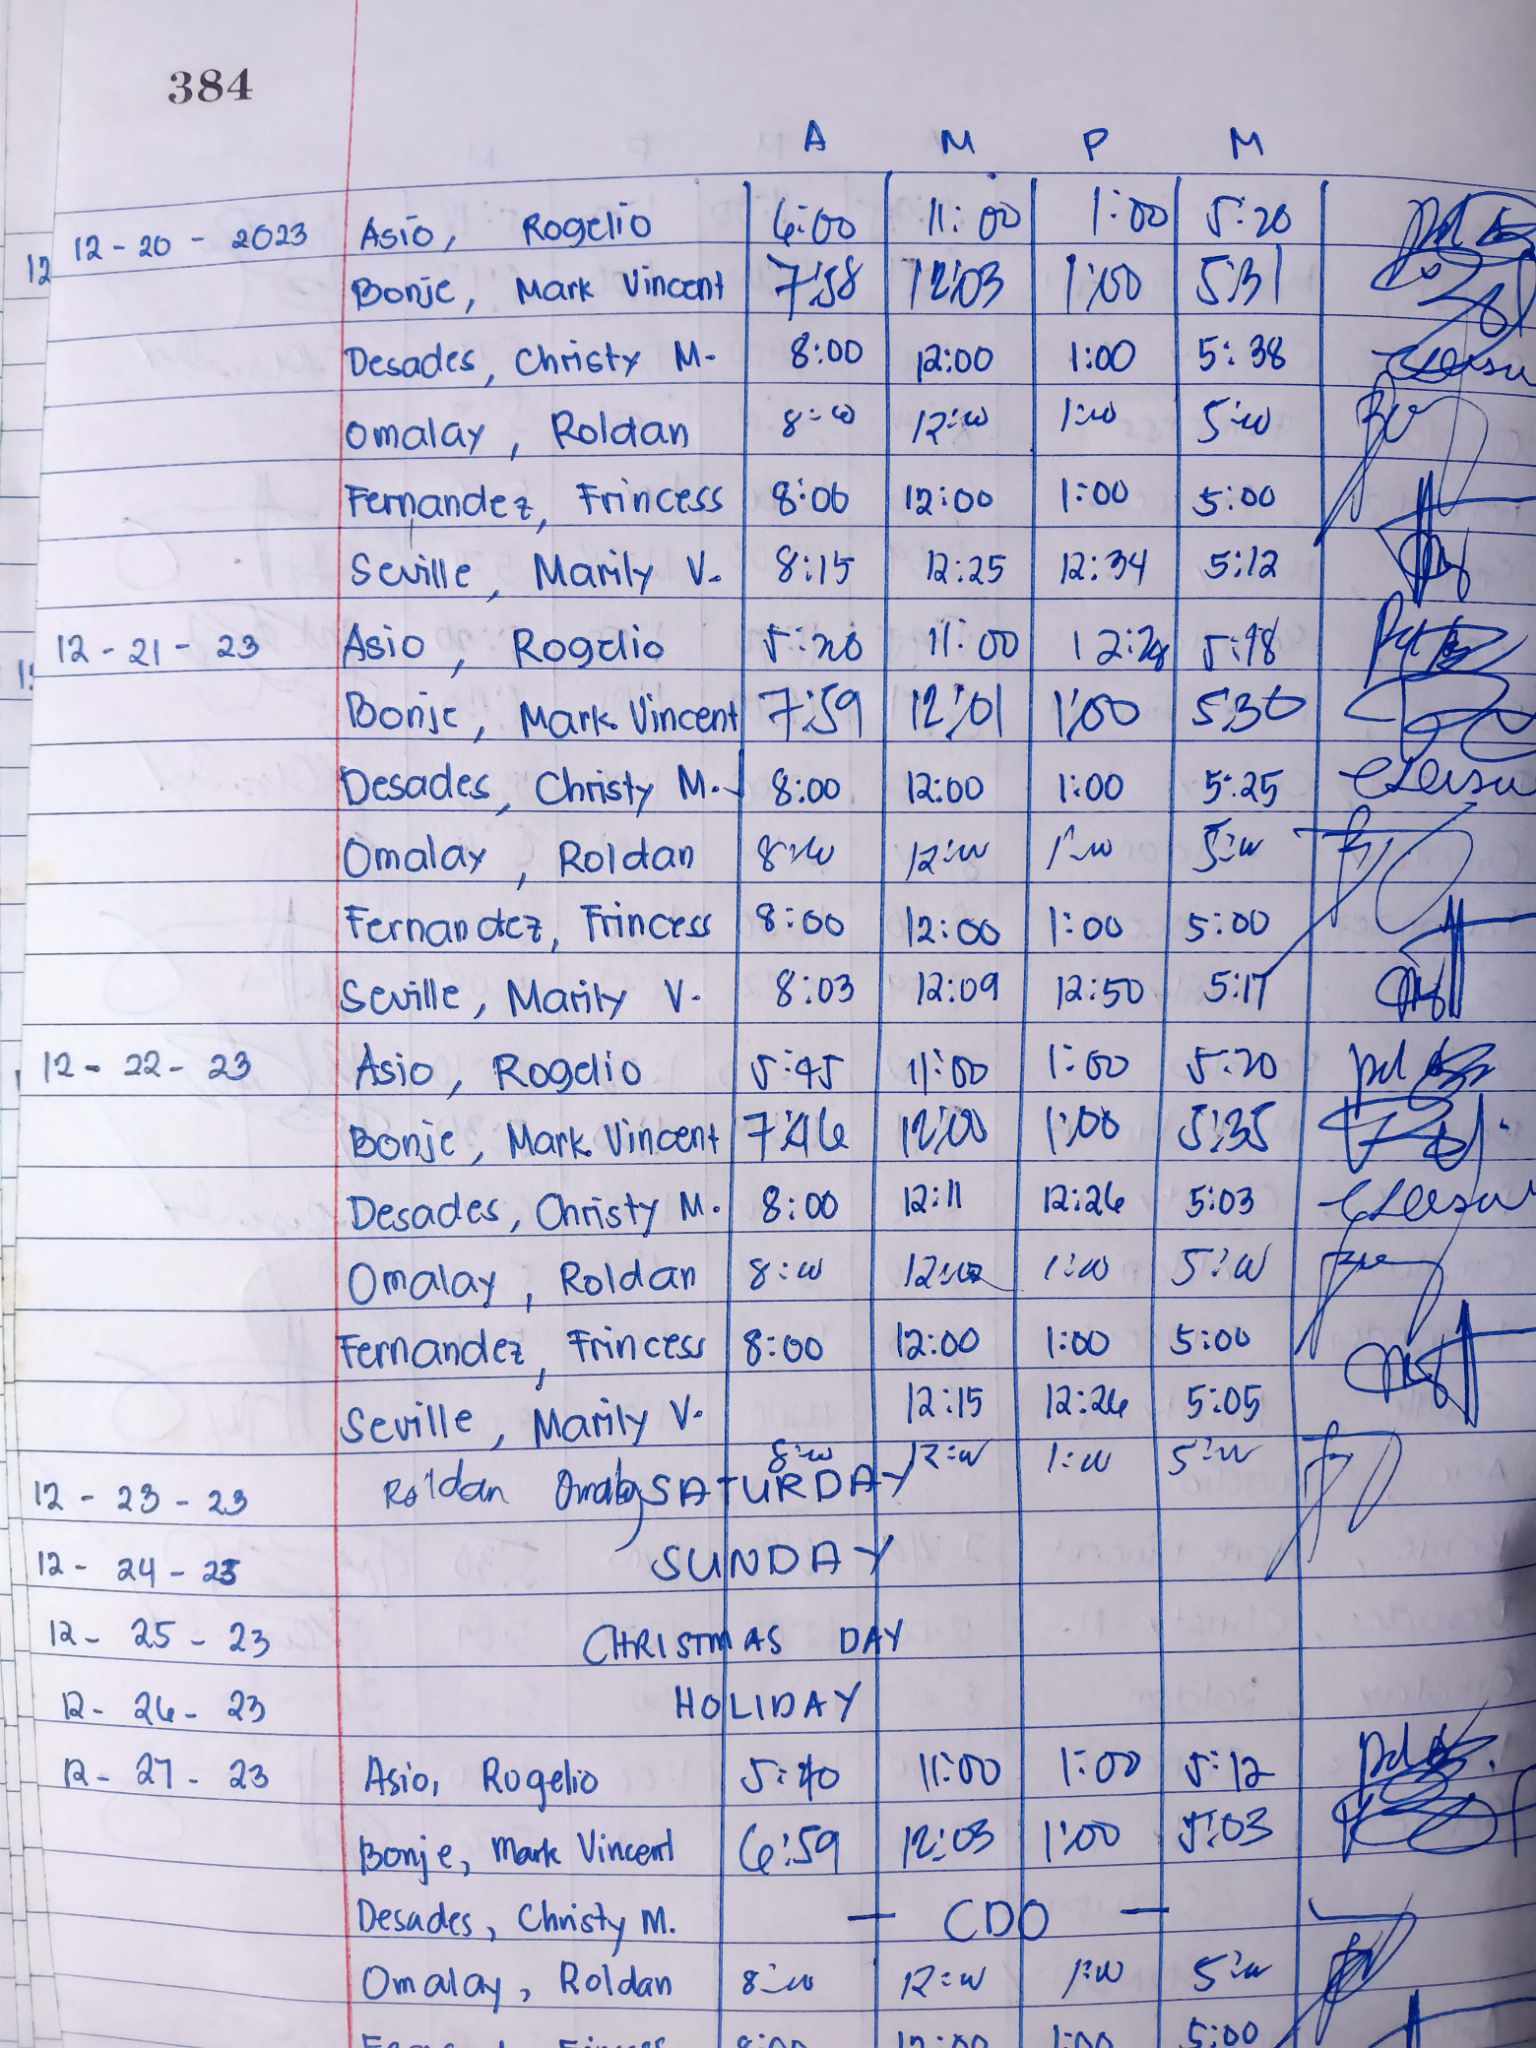 384
A M P M
12-20-2023 Asio, Rogelio 6:00 11:00 1:00 5:20
12 Bonje, Mark Vincent 7:58 12:03 1:00 5:31
Desades, Christy M. 8:00 12:00 1:00 5:38
Omalay, Roldan 8:00 12:00 1:00 5:00
Fernandez, Frincess 8:00 12:00 1:00 5:00
Seville, Marily V. 8:15 12:25 12:34 5:12
12-21-23 Asio, Rogelio 5:20 11:00 5:18
Bonje, Mark Vincent 7:59 12:01 1:00 5:30
Desades, Christy M. 8:00 12:00 1:00 5:25
Omalay, Roldan 8:00 12:00 1:00 5:00
Fernandez, Frincess 8:00 12:00 1:00 5:00
Seville, Marily V. 8:03 12:09 12:50 5:17
12-22-23 Asio, Rogelio 5:45 11:00 1:00 5:20
Bonje, Mark Vincent 7:46 12:00 1:00 5:35
Desades, Christy M. 8:00 12:11 12:26 5:03
Omalay, Roldan 8:00 12:00 1:00 5:00
Fernandez, Frincess 8:00 12:00 1:00 5:00
Seville, Marily V. 12:15 12:26 5:05
12-23-23 Roldan Omalay SATURDAY 8:00 12:00 1:00 5:00
12-24-23 SUNDAY
12-25-23 CHRISTMAS DAY
12-26-23 HOLIDAY
12-27-23 Asio, Rogelio 5:40 11:00 1:00 5:12
Bonje, Mark Vincent 6:59 12:03 1:00 5:03
Desades, Christy M. - CDO -
Omalay, Roldan 8:00 12:00 1:00 5:00
8:00 12:00 1:00 5:00